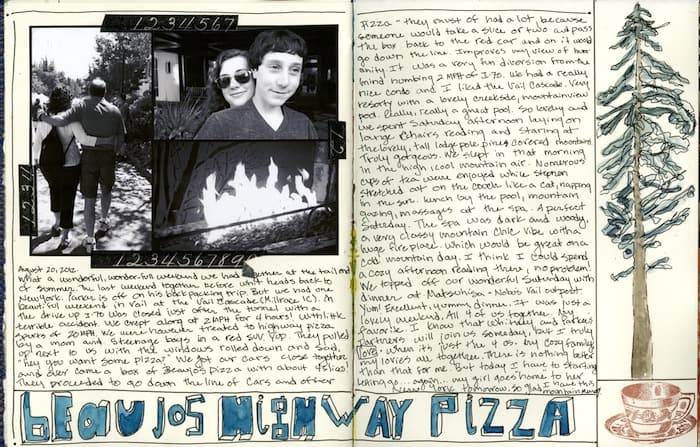 1234567
1234
12
1234567890
August 20, 2012
What a wonderful, wonder-full weekend we had together at the tail end
of summer. The last weekend together before Whit heads back to
New York. Parker is off on his backpacking trip. But we had one
beautiful weekend in Vail at the Vail Cascade (Millrace 1C). At
the drive up I-70 was closed just after the tunnel with a
terrible accident. We crept along at 2 MPH for 4 hours! With little
spurts of 20 MPH. We were however treated to highway pizza
by a mom and teenage boys in a red SUV. Yup. They pulled
up next to us with the windows rolled down and said
"Hey you want some pizza?" We got our cars close together
and over came a box of Beaujo's pizza with about 4 slices!
They proceeded to go down the line of cars and offer
pizza - they must of had a lot, because
someone would take a slice or two and pass
the box back to the red car and on it would
go down the line. Improves my view of hum-
anity. It was a very fun diversion from the
mind numbing 2 MPH of I-70. We had a really
nice condo and I liked the Vail Cascade. Very
resorty with a lovely creekside, mountainview
pool. Really, really a great pool. So lovely and
we spent Saturday afternoon laying on
lounge chairs reading and staring at
the lovely, tall lodge pole pines covered mountains
Truly gorgeous. We slept in that morning
in the high, cool mountain air. Numerous
cups of tea were enjoyed while Stephen
stretched out on the couch like a cat, napping
in the sun. Lunch by the pool, mountain
gazing, massages at the spa. A perfect
Saturday. The spa was dark and woody,
a very classy mountain chic vibe with a
huge fireplace. Which would be great on a
cold mountain day. I think I could spend
a cozy afternoon reading there, no problem.
We topped off our wonderful Saturday with
dinner at Matsuhisa, Nobu's Vail outpost.
Yum! Excellent, yummy dinner. It was just a
lovely weekend. All 4 of us together. My
favorite. I know that Whitney and Parker's
partners will join us someday, but I truly
love when it's just the 4 of us. My cozy family
my loves all together. There is nothing better
than that for me. But today I have to start
letting go... again. My girl goes home to her
New York tomorrow. So glad I have this
mountain memory
BEAUJOS HIGHWAY PIZZA